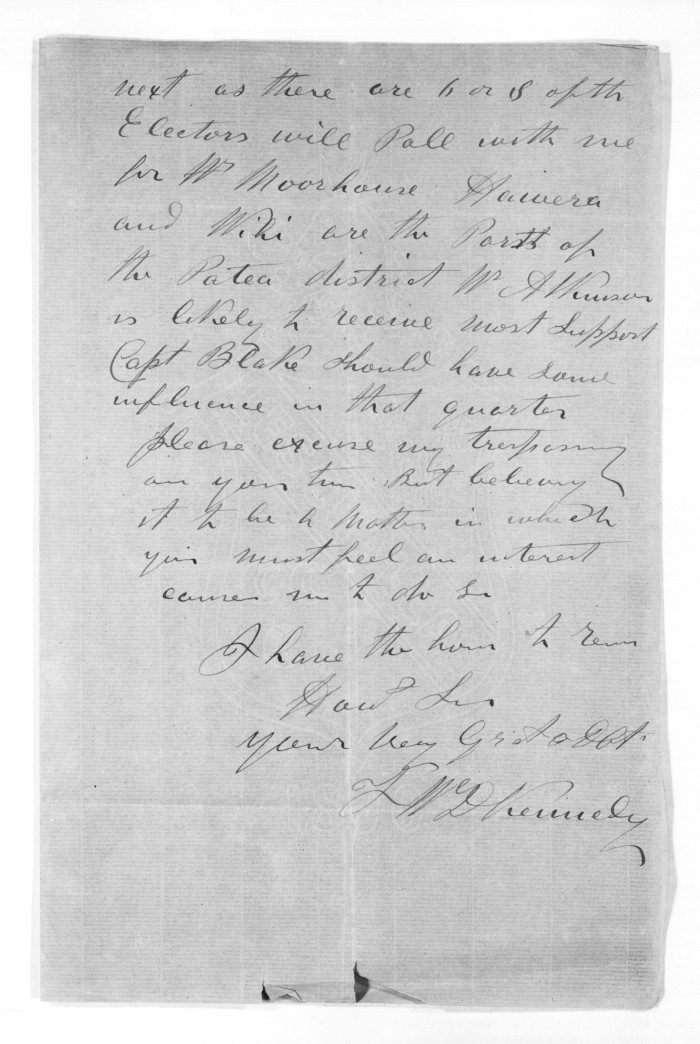 next as there are 6 or 8 of the
Electors will Poll with me
for Mr Moorhouse Hawera
and Wihi are the Parts of
the Patea district Mr Atkinson
is likely to receive most support
Capt Blake should have some
influence in that quarter
please excuse my trespassing
on your time But believing
it to be a Matter in which
you must feel an interest
causes me to do so
I have the honor to remn
Hond Sir
your Very Grat & Obt
McD Kennedy